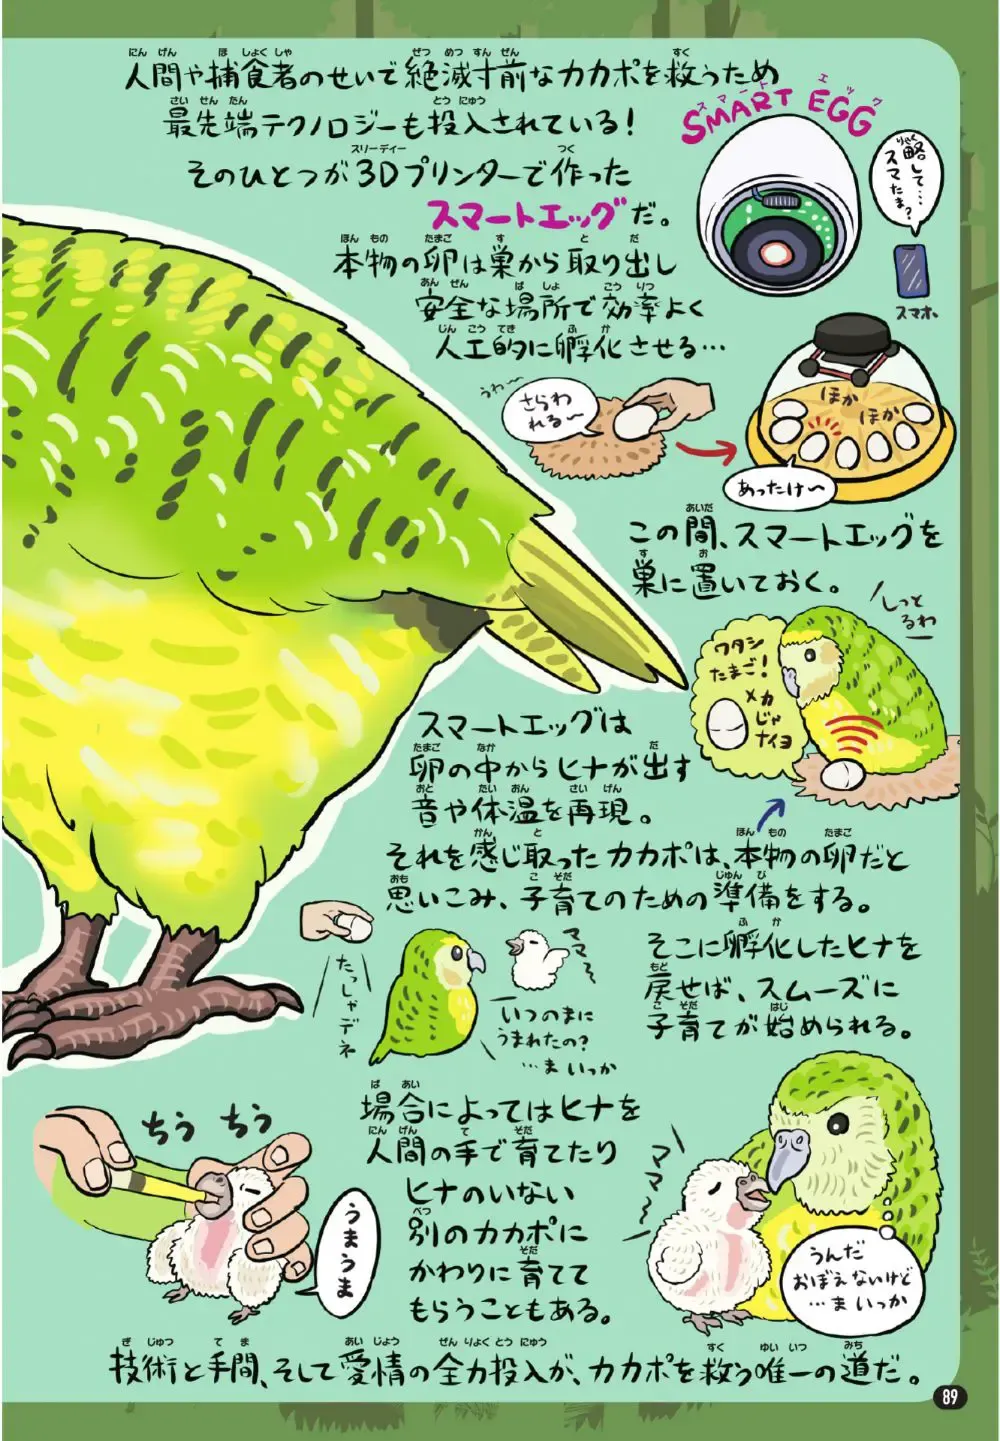 人間や捕食者のせいで絶滅寸前なカカポを救うため
最先端テクノロジーも投入されている！
そのひとつが3Dプリンターで作った
スマートエッグだ。
SMART EGG
略して…
スマたま？
スマホ
本物の卵は巣から取り出し
安全な場所で効率よく
人工的に孵化させる…
うわ〜
さらわ
れる〜
ほか
ほか
あったけ〜
この間、スマートエッグを
巣に置いておく。
しっと
るわ
ワタシ
たまご！
メカ
じゃ
ナイヨ
スマートエッグは
卵の中からヒナが出す
音や体温を再現。
それを感じ取ったカカポは、本物の卵だと
思いこみ、子育てのための準備をする。
そこに孵化したヒナを
戻せば、スムーズに
子育てが始められる。
たっしゃデネ
ママ〜
いつのまに
うまれたの？
…ま いっか
場合によってはヒナを
人間の手で育てたり
ヒナのいない
別のカカポに
かわりに育てて
もらうこともある。
ちう ちう
うまうま
ママ〜
うんだ
おぼえないけど
…ま いっか
技術と手間、そして愛情の全力投入が、カカポを救う唯一の道だ。
89